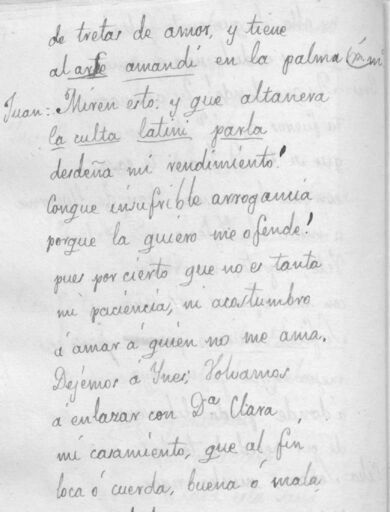 de tretas de amor, y tiene
al arte amandi en la palma
Juan: Miren esto: y que altanera
la culta latini parla
desdeña mi rendimiento!
Congue insufrible arrogancia
porque la quiero me ofende!
pues por cierto que no es tanta
mi paciencia, ni acostumbro
á amar á quien no me ama.
Dejémos á Ynes; Volvamos
á enlazar con Dª Clara
mi casamiento, que al fin
loca ó cuerda, buena ó mala